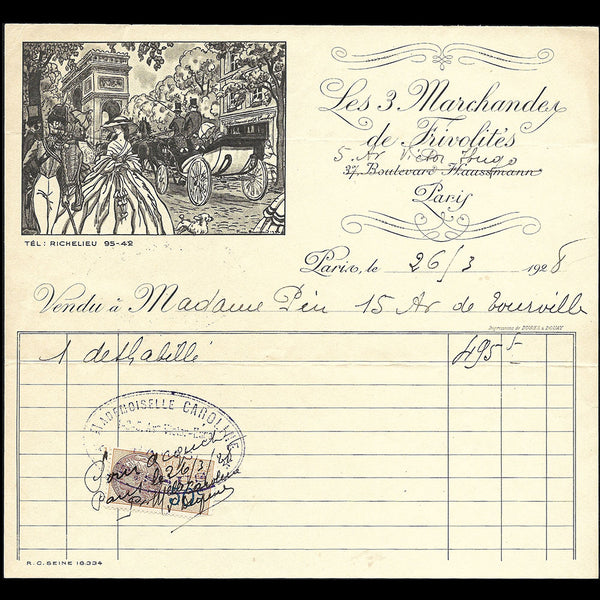 Les 3 Marchandes
de Frivolités
5 Av Victor Hugo
37, Boulevard Haussmann
Paris
TÉL: RICHELIEU 95-42
Paris, le 26/3 1928
Vendu à Madame Pén 15 Av de Tourville
Impressions de
1 déshabillé 495
MADEMOISELLE CAROLINE
Pour acquit
Paris le 26/3/28
R.C. SEINE 16.334